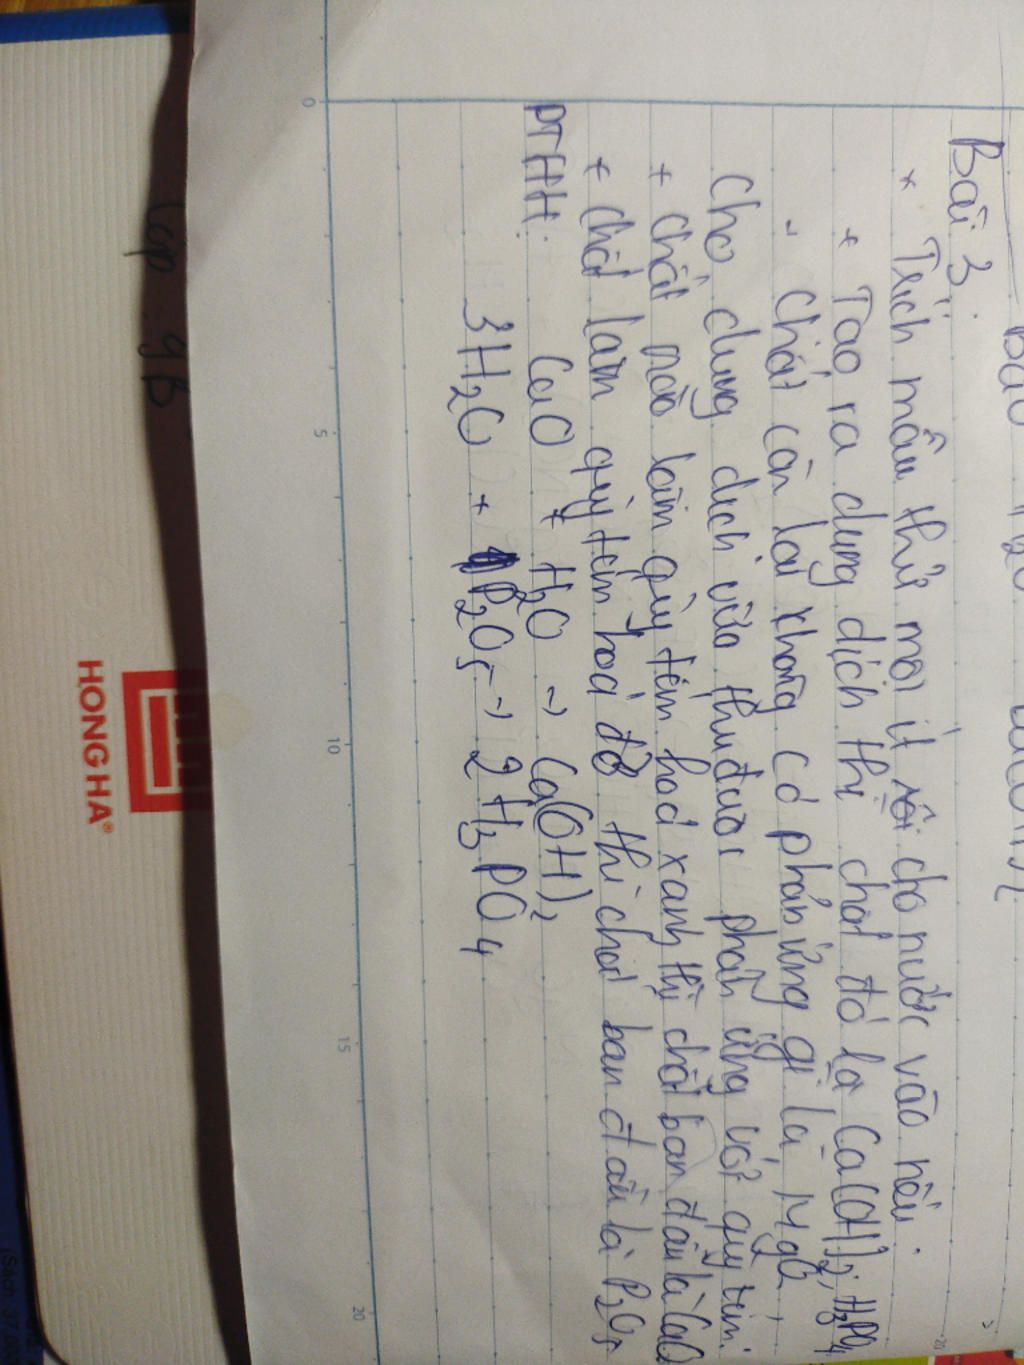 Bài 3.
* Trích mẫu thử mỗi ít rồi cho nước vào nếu.
+ Tạo ra dung dịch thì chất đó là Ca(OH)2, H3PO4
- Chất còn lại không có phản ứng gì là MgO,
Cho dung dịch vừa thu được phản ứng với quỳ tím.
+ Chất nào làm quỳ tím hoá xanh thì chất ban đầu là CaO
+ Chất làm quỳ tím hoá đỏ thì chất ban đầu là P2O5
PTHH: CaO + H2O -> Ca(OH)2
3H2O + P2O5 -> 2H3PO4
0 5 10 15 20
Lớp: 9B
HONG HA®